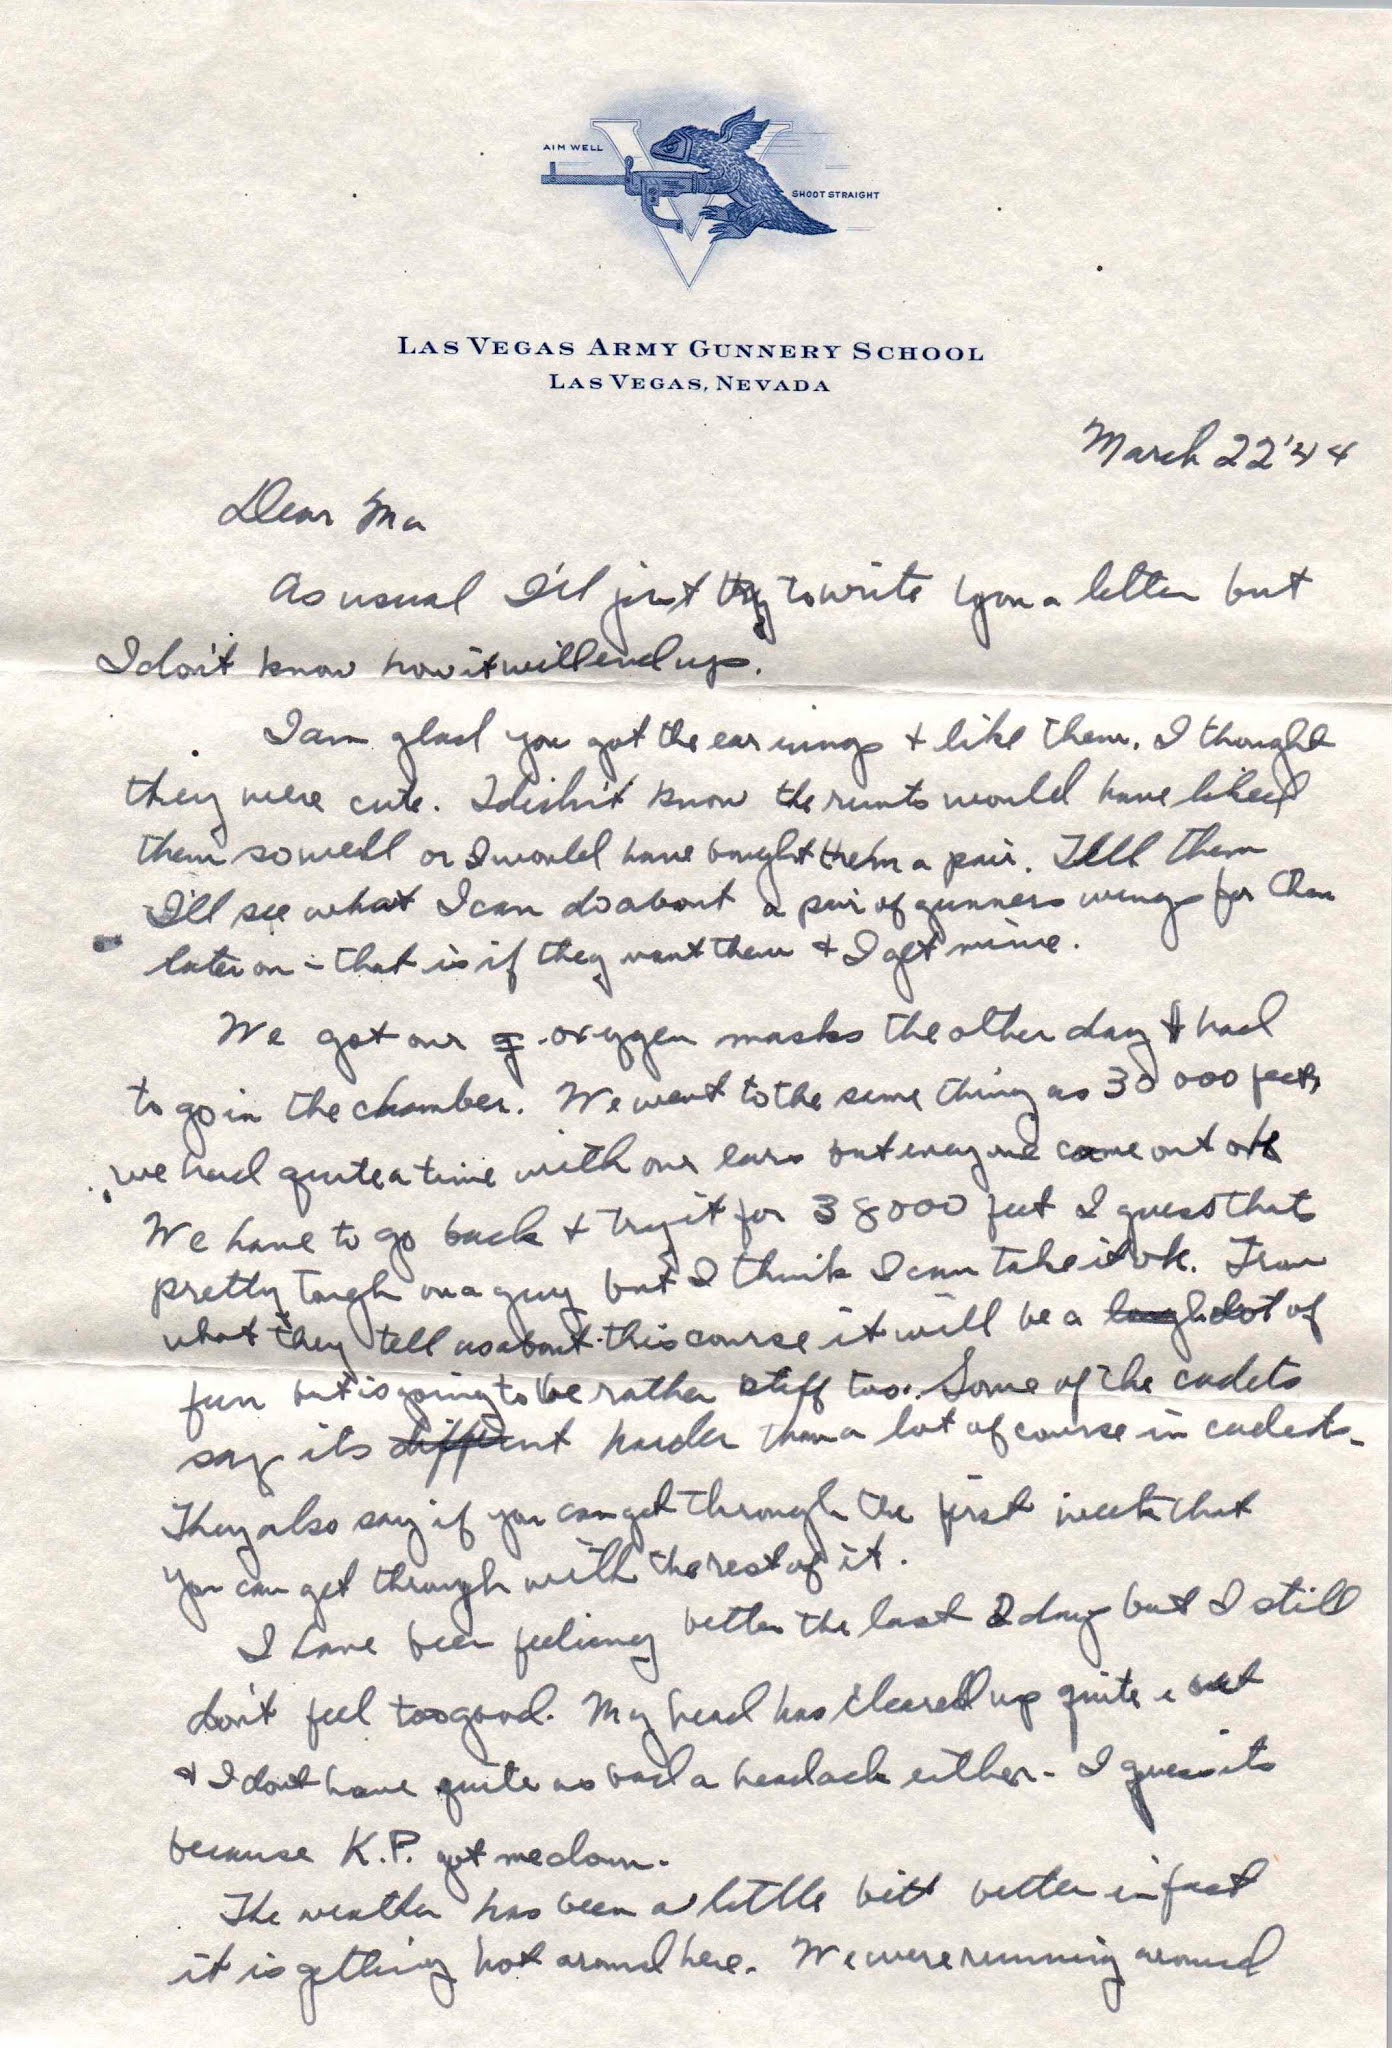 AIM WELL
SHOOT STRAIGHT
LAS VEGAS ARMY GUNNERY SCHOOL
LAS VEGAS, NEVADA
March 22 '44
Dear Ma
As usual I'll just try to write you a letter but
I don't know how it will end up.
I am glad you got the ear wings + like them. I thought
they were cute. I didn't know the runts would have liked
them so well or I would have bought them a pair. Tell them
I'll see what I can do about a pair of gunners wings for them
later on - that is if they want them + I get mine.
We got our oxygen masks the other day & had
to go in the chamber. We went to the same thing as 30 000 feet,
we had quite a time with our ears but everyone came out ok
We have to go back + try it for 38000 feet I guess thats
pretty tough on a guy but I think I can take it ok. From
what they tell us about this course it will be a lot of
fun but is going to be rather stiff too. Some of the cadets
say its different harder than a lot of course in cadets.
They also say if you can get through the first week that
you can get through with the rest of it.
I have been feeling better the last 2 days but I still
don't feel too good. My head has cleared up quite a bit
+ I dont have quite as bad a headack either - I guess its
because K.P. got me down.
The weather has been a little bitt better in fact
it is getting hot around here. We were running around